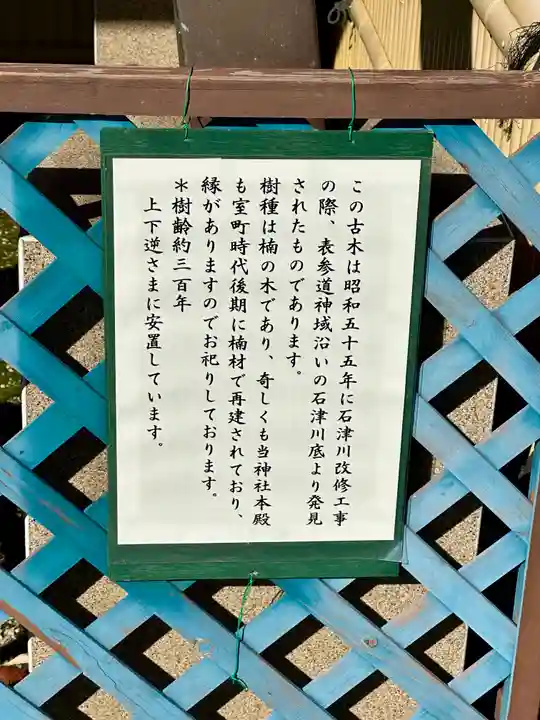 この古木は昭和五十五年に石津川改修工事
の際、表参道神域沿いの石津川底より発見
されたものであります。
樹種は楠の木であり、奇しくも当神社本殿
も室町時代後期に楠材で再建されており、
縁がありますのでお祀りしております。
＊樹齢約三百年
上下逆さまに安置しています。